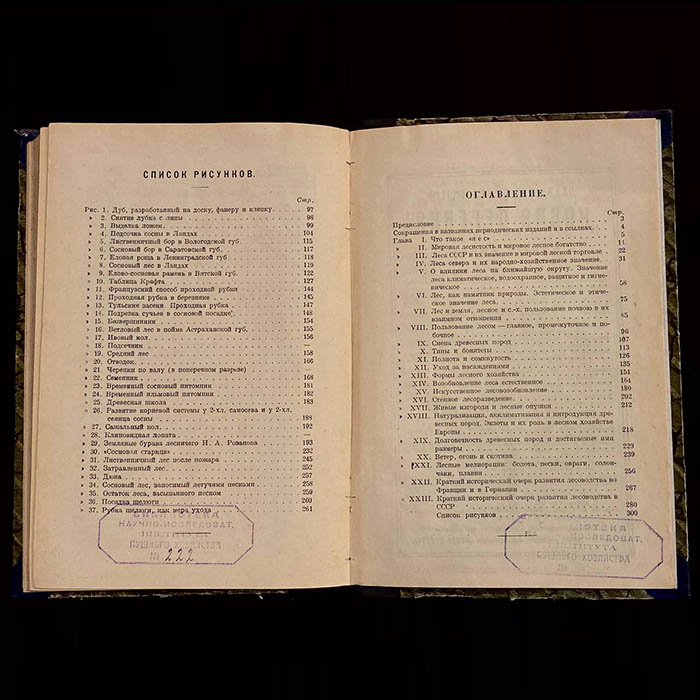 СПИСОК РИСУНКОВ.
Стр.
Рис. 1. Дуб, разработанный на доску, фанеру и клепку. 97
» 2. Снятие лубка с липы 98
» 3. Выделка ложек 99
» 4. Подсочка сосны в Ландах 104
» 5. Лиственничный бор в Вологодской губ. 115
» 6. Сосновый бор в Саратовской губ. 117
» 7. Еловая роща в Ленинградской губ. 118
» 8. Сосновый бор в Ландах 119
» 9. Елово-сосновая рамень в Вятской губ. 122
» 10. Таблица Крафта 127
» 11. Французский способ проходной рубки 144
» 12. Проходная рубка в березняке 145
» 13. Тульские засеки Проходная рубка 147
» 14. Подрезка сучьев в сосновой посадке 148
» 15. Безвершинники 154
» 16. Ветловый лес в пойме Астраханской губ. 155
» 17. Ивовый кол. 156
» 18. Подсечник —
» 19. Средний лес 158
» 20. Отводок. 166
» 21. Черенки по валу (в поперечном разрезе) —
» 22. Семенник 168
» 23. Временный сосновый питомник 181
» 24. Временный ильмовый питомник 182
» 25. Древесная школа 183
» 26. Развитие корневой системы у 2-хл. самосева и у 2-хл.
сеянца сосны 188
» 27. Сажальный кол. 192
» 28. Клиновидная лопата —
» 29. Земляные бурава лесничего Н. А. Розанова 193
» 30. «Сосновая старица» 232
» 31. Лиственничный лес после пожара 245
» 32. Затравленный лес. 252
» 33. Дюна 257
» 34. Сосновый лес, заносимый летучими песками 258
» 35. Остаток леса, засыпанного песком 259
» 36. Посадка шелюги 260
» 37. Рубка шелюги, как мера ухода 261
БИБЛИОТЕКА
НАУЧНО-ИССЛЕДОВАТ.
ИНСТИТУТА
ПУШНОГО ХОЗЯЙСТВА
№ 222
ОГЛАВЛЕНИЕ.
Стр.
Предисловие 3
Сокращения в названиях периодических изданий и в ссылках. 4
Глава I. Что такое «лес» 5
» II. Мировая лесистость и мировое лесное богатство 11
» III. Леса СССР и их значение в мировой лесной торговле 22
» IV. Леса севера и их народно-хозяйственное значение 31
» V. О влиянии леса на ближайшую округу. Значение
леса климатическое, водоохранное, защитное и гигие-
ническое 58
» VI. Лес, как памятник природы. Эстетическое и этиче-
ское значение леса. 75
» VII. Лес и земля, лесное и с.-х. пользование почвою в их
взаимном отношении 85
» VIII. Пользование лесом — главное, промежуточное и по-
бочное 96
» IX. Смена древесных пород 107
» X. Типы и бонитеты 113
» XI. Полнота и сомкнутость 126
» XII. Уход за насаждениями 135
» XIII. Формы лесного хозяйства 151
» XIV. Возобновление леса естественное 164
» XV. Искусственное лесовозобновление 180
» XVI. Степное лесоразведение 202
» XVII. Живые изгороди и лесные опушки 212
» XVIII. Натурализация, акклиматизация и интродукция дре-
весных пород. Экзоты и их роль в лесном хозяйстве
Европы 218
» XIX. Долговечность древесных пород и достигаемые ими
размеры 229
» XX. Ветер, огонь и скотина 239
» XXI. Лесные мелиорации: болота, пески, овраги, солон-
чаки, плавни 256
» XXII. Краткий исторический очерк развития лесоводства во
Франции и в Германии 267
» XXIII. Краткий исторический очерк развития лесоводства в
СССР 280
Список рисунков 300
ИНСТИТУТА
ПУШНОГО ХОЗЯЙСТВА